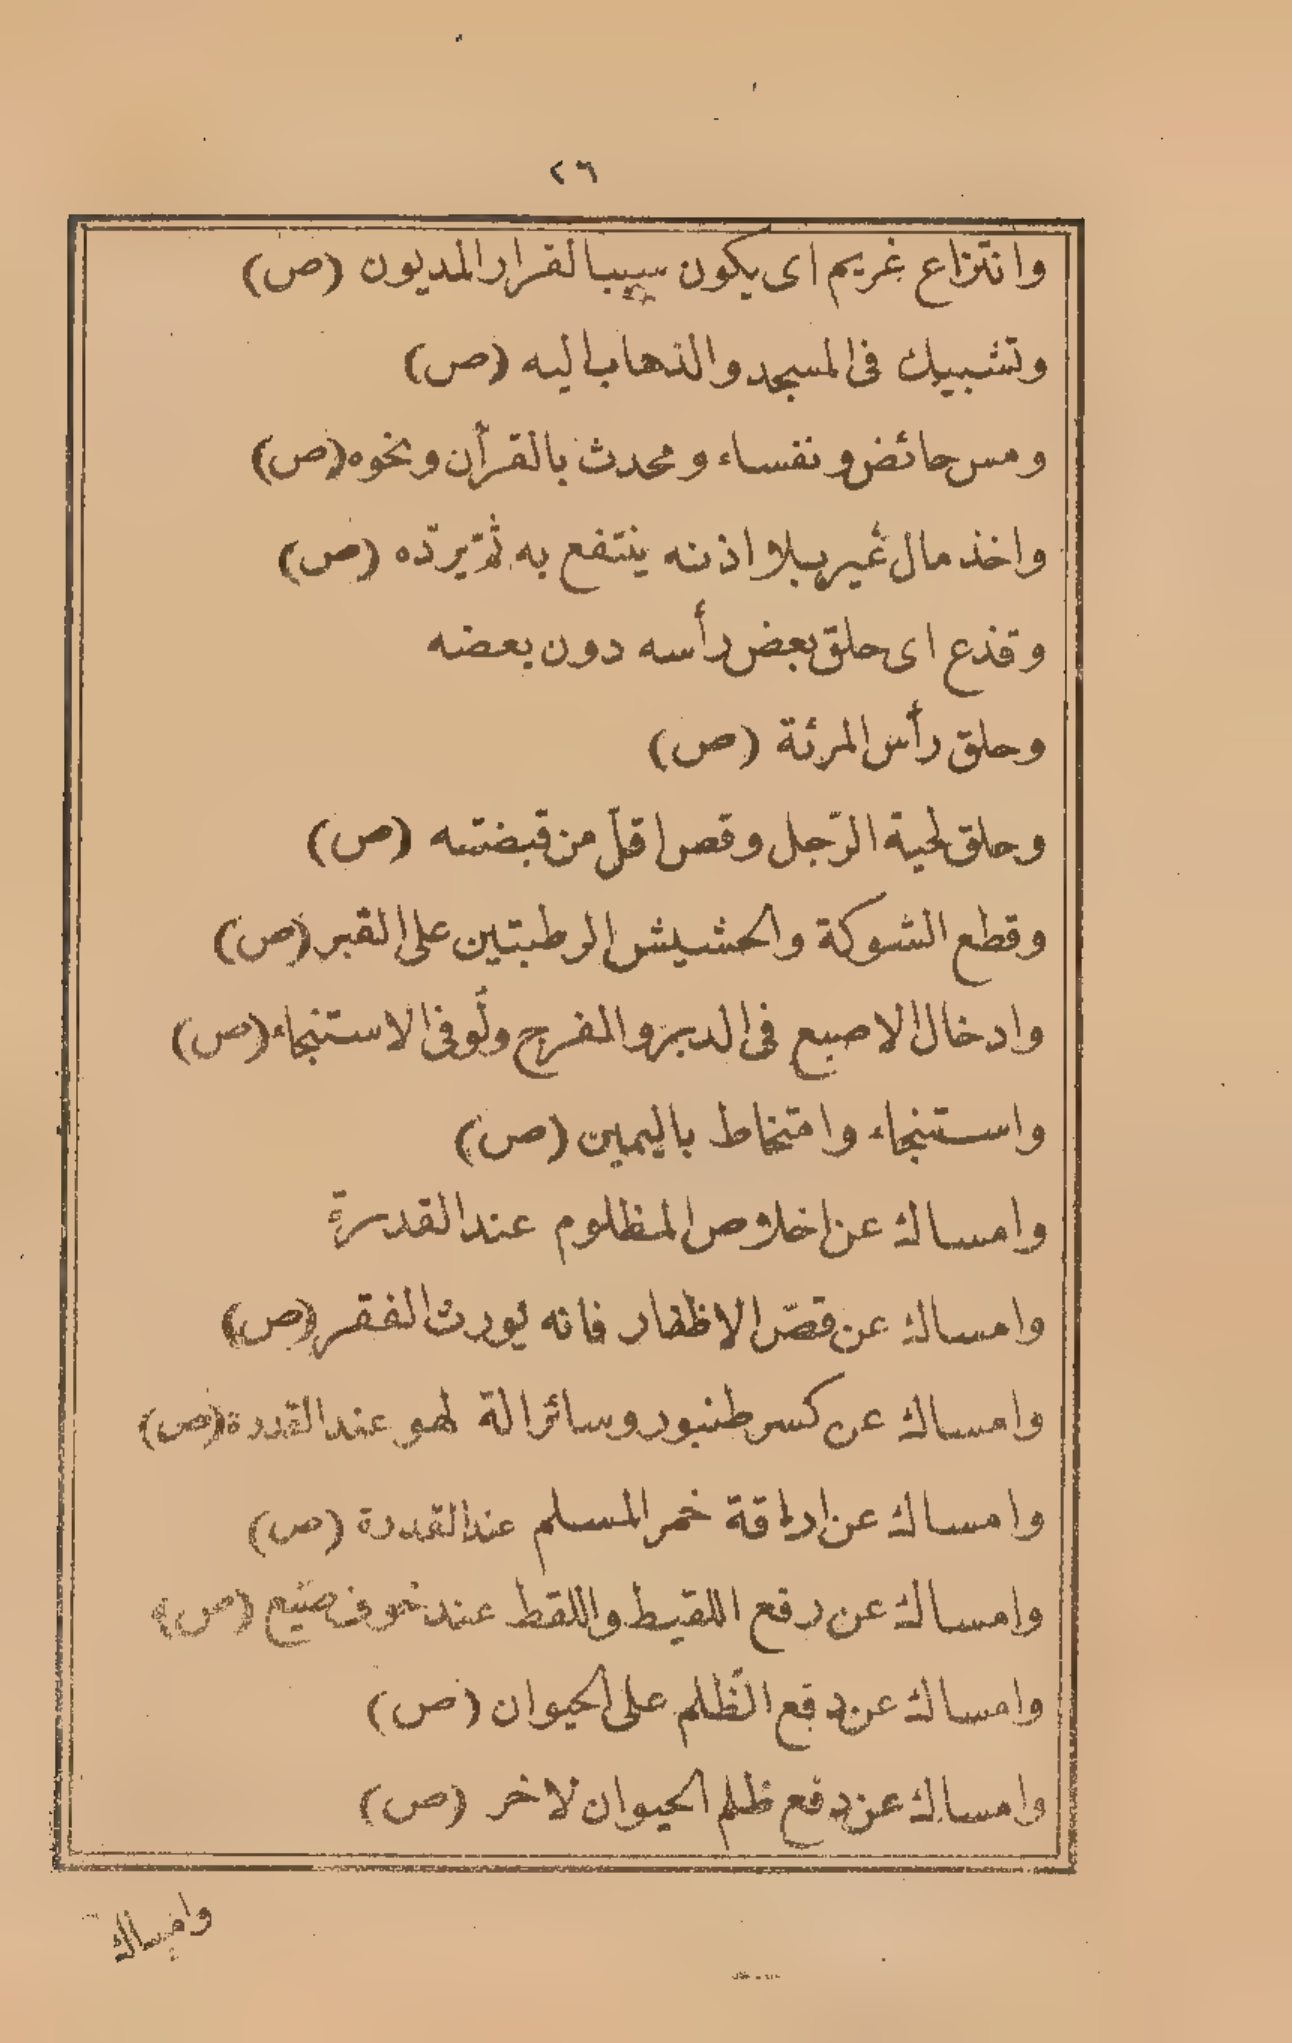 ٢٦
وانتزاع غريم اى يكون سببا لفرار المديون (ص)
وتشبيك فى المسجد والذهاب اليه (ص)
ومس حائض ونفساء ومحدث بالقرأن ونحوه (ص)
واخذ مال غير بلا اذنه ينتفع به ثمّ يردّه (ص)
وقذع اى حلق بعض رأسه دون بعضه
وحلق رأس المرئة (ص)
وحلق لحية الرّجل وقص اقلّ من قبضته (ص)
وقطع الشوكة والحشيش الرطبتين على القبر (ص)
وادخال الاصبع فى الدبر والفرج ولو فى الاستنجاء (ص)
واستنجاء وامتخاط باليمين (ص)
وامساك عن اخلاص المظلوم عند القدرة
وامساك عن قصّ الاظفار فانه يورث الفقر (ص)
وامساك عن كسر طنبور وسائر الة لهو عند القدرة (ص)
وامساك عن اراقة خمر المسلم عند القدرة (ص)
وامساك عن رفع اللقيط واللقط عند خوف ضيع (ص)
وامساك عن دفع الظّلم على الحيوان (ص)
وامساك عن دفع ظلم الحيوان لاخر (ص)
وامساك